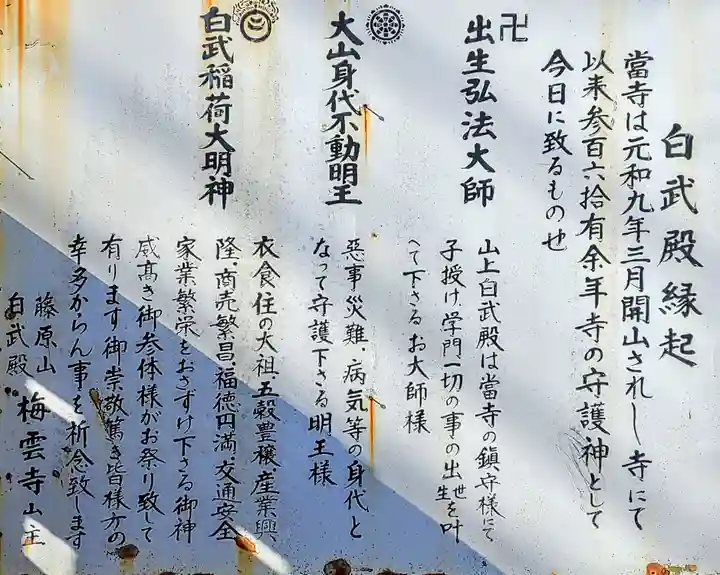 白武殿縁起
當寺は元和九年三月開山されし寺にて
以来参百六拾有余年寺の守護神として
今日に致るものせ
卍
出生弘法大師
山上白武殿は當寺の鎮守様にて
子授け、学門一切の事の出世生を叶
へて下さるお大師様
大山身代不動明王
惡事災難、病気等の身代と
なって守護下さる明王様
白武稲荷大明神
衣食住の大祖五穀豊穣産業興
隆、商売繁昌福徳円満、交通安全
家業繁栄をおさずけ下さる御神
威高き御参体様がお祭り致して
有ります御崇敬篤き皆様方の
幸多からん事を祈念致します
藤原山
白武殿
梅雲寺山主